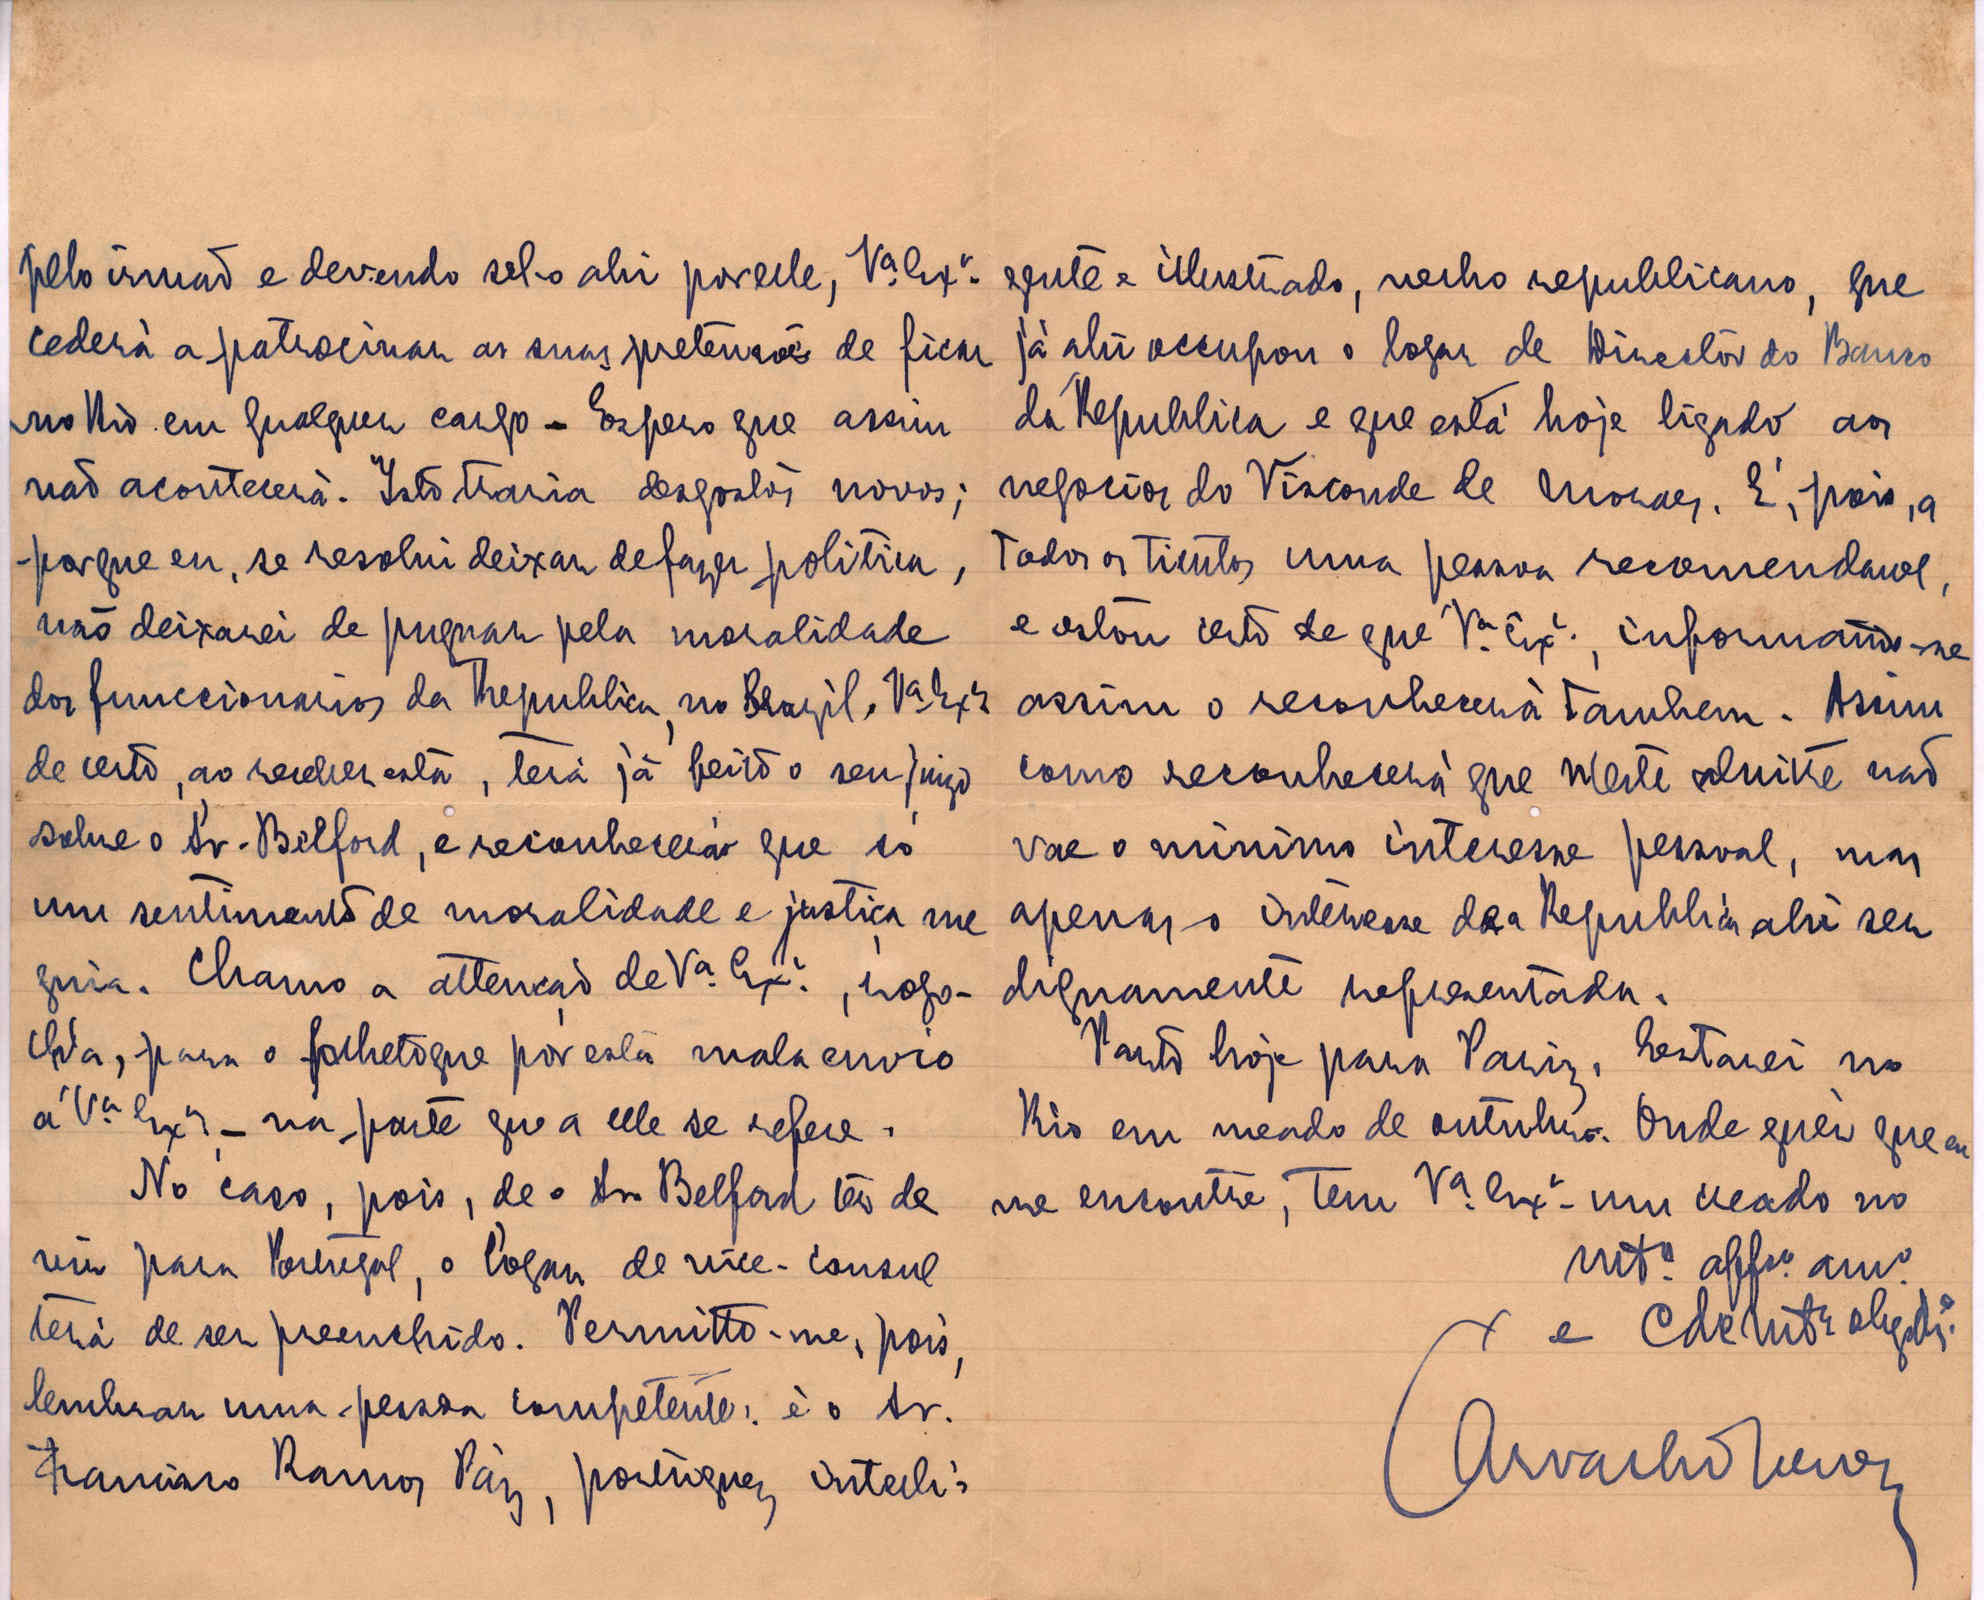 pelo irmaõ e devendo sel-o ahi por elle, Vª. Exª.
cederà a patrocinar as suas pretensoẽs de ficar
no Rio em qualquer cargo - Espero que assim
naõ acontecerà. Isto traria desgostos novos;
porque eu, se resolvi deixar de fazer politica,
naõ deixarei de pugnar pela moralidade
dos funccionarios da Republica, no Brazil. Vª Exª
de certo, ao receber esta, terà jà feito o seu juizo
sobre o Sr. Belford, e reconhecerà que só
um sentimento de moralidade e justiça me
guia. Chamo a attençaõ de Vª. Exª., rogo-
lh'a, para o folheto que por esta mala envio
a Vª. Exª, - na parte que a elle se refere.
No caso, pois, de o Sr. Belford ter de
vir para Portugal, o logar de vice-consul
terà de ser preenchido. Permitto-me, pois,
lembrar uma pessoa competente: é o Sr.
Francisco Ramos Pàz, portuguez intelli-
gente e illustrado, velho republicano, que
jà ahi occupou o logar de Director do Banco
da Republica e que està hoje ligado aos
negocios do Visconde de Moraes. É, pois, a
todos os titulos uma pessoa recomendavel,
e estou certo de que Vª. Exª., informando-se
assim o reconhecerà tambem. Assim
como reconhecerà que n'este alvitre naõ
vae o minimo interesse pessoal, mas
apenas o interesse da Republica ahi ser
dignamente representada.
Parto hoje para Pariz. Estarei no
Rio em meado de outubro. Onde quer que eu
me encontre, tem Vª. Exª. um creado no
mtº. affº. amº.
e Cdº mtº obgdº.
Carvalho Neves